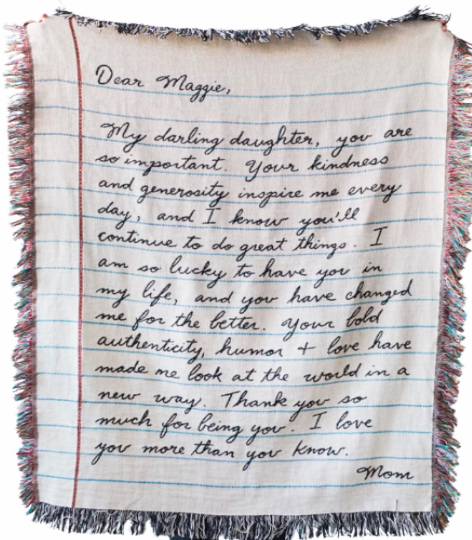 Dear Maggie,
My darling daughter, you are
so important. Your kindness
and generosity inspire me every
day, and I know you'll
continue to do great things. I
am so lucky to have you in
my life, and you have changed
me for the better. Your bold
authenticity, humor + love have
made me look at the world in a
new way. Thank you so
much for being you. I love
you more than you know.
Mom